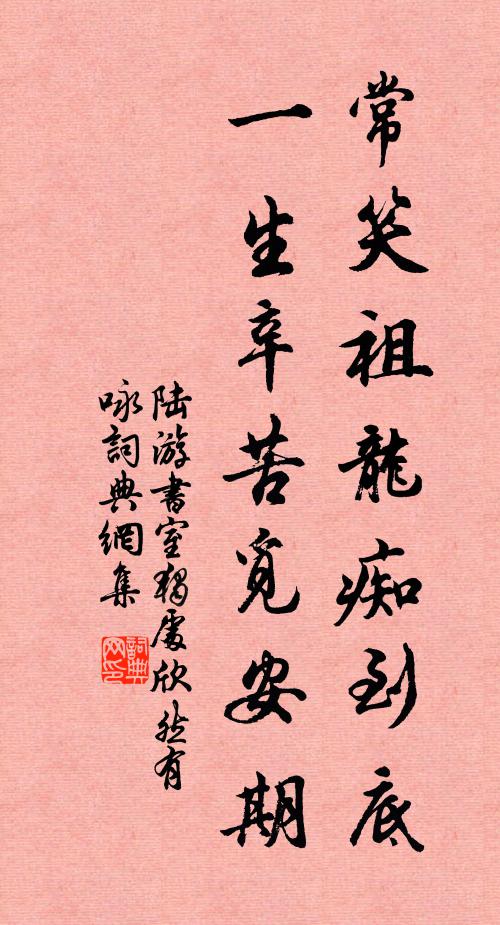 常笑祖龍痴到底
一生辛苦覓安期
陆游書室獨處欣然有
咏詞典網集
詞典
网印